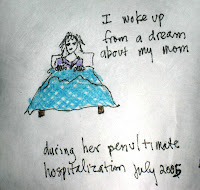 I woke up
from a dream
about my mom
during her penultimate
hospitalization July 2005